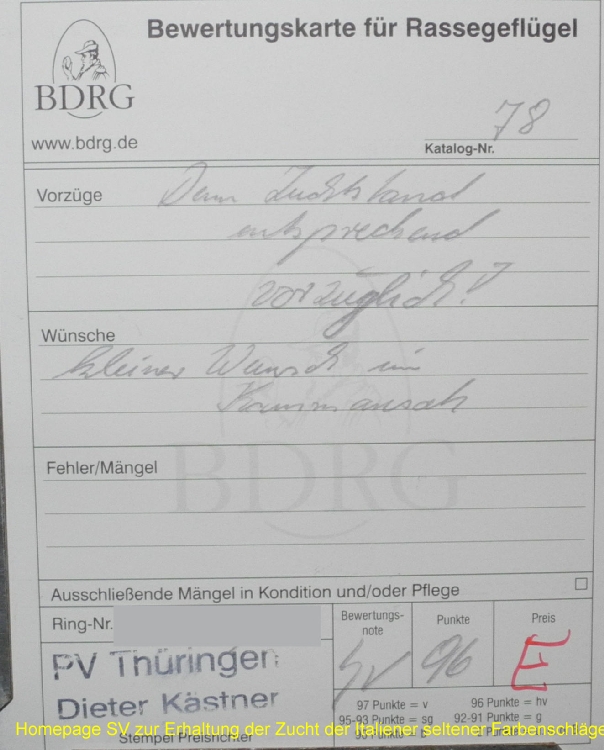 Bewertungskarte für Rassegeflügel
BDRG
www.bdrg.de
78
Katalog-Nr.
Vorzüge Dem Zuchtstand
entsprechend
vorzüglich!
Wünsche
kleiner Wunsch im
Kammansatz
BDRG
Fehler/Mängel
Ausschließende Mängel in Kondition und/oder Pflege
Ring-Nr.
Bewertungs-
note
Punkte
Preis
hv 96 E
PV Thüringen
Dieter Kästner
Stempel Preisrichter
97 Punkte = v 96 Punkte = hv
95-93 Punkte = sg 92-91 Punkte = g
90 Punkte
Homepage SV zur Erhaltung der Zucht der Italiener seltener Farbenschläge